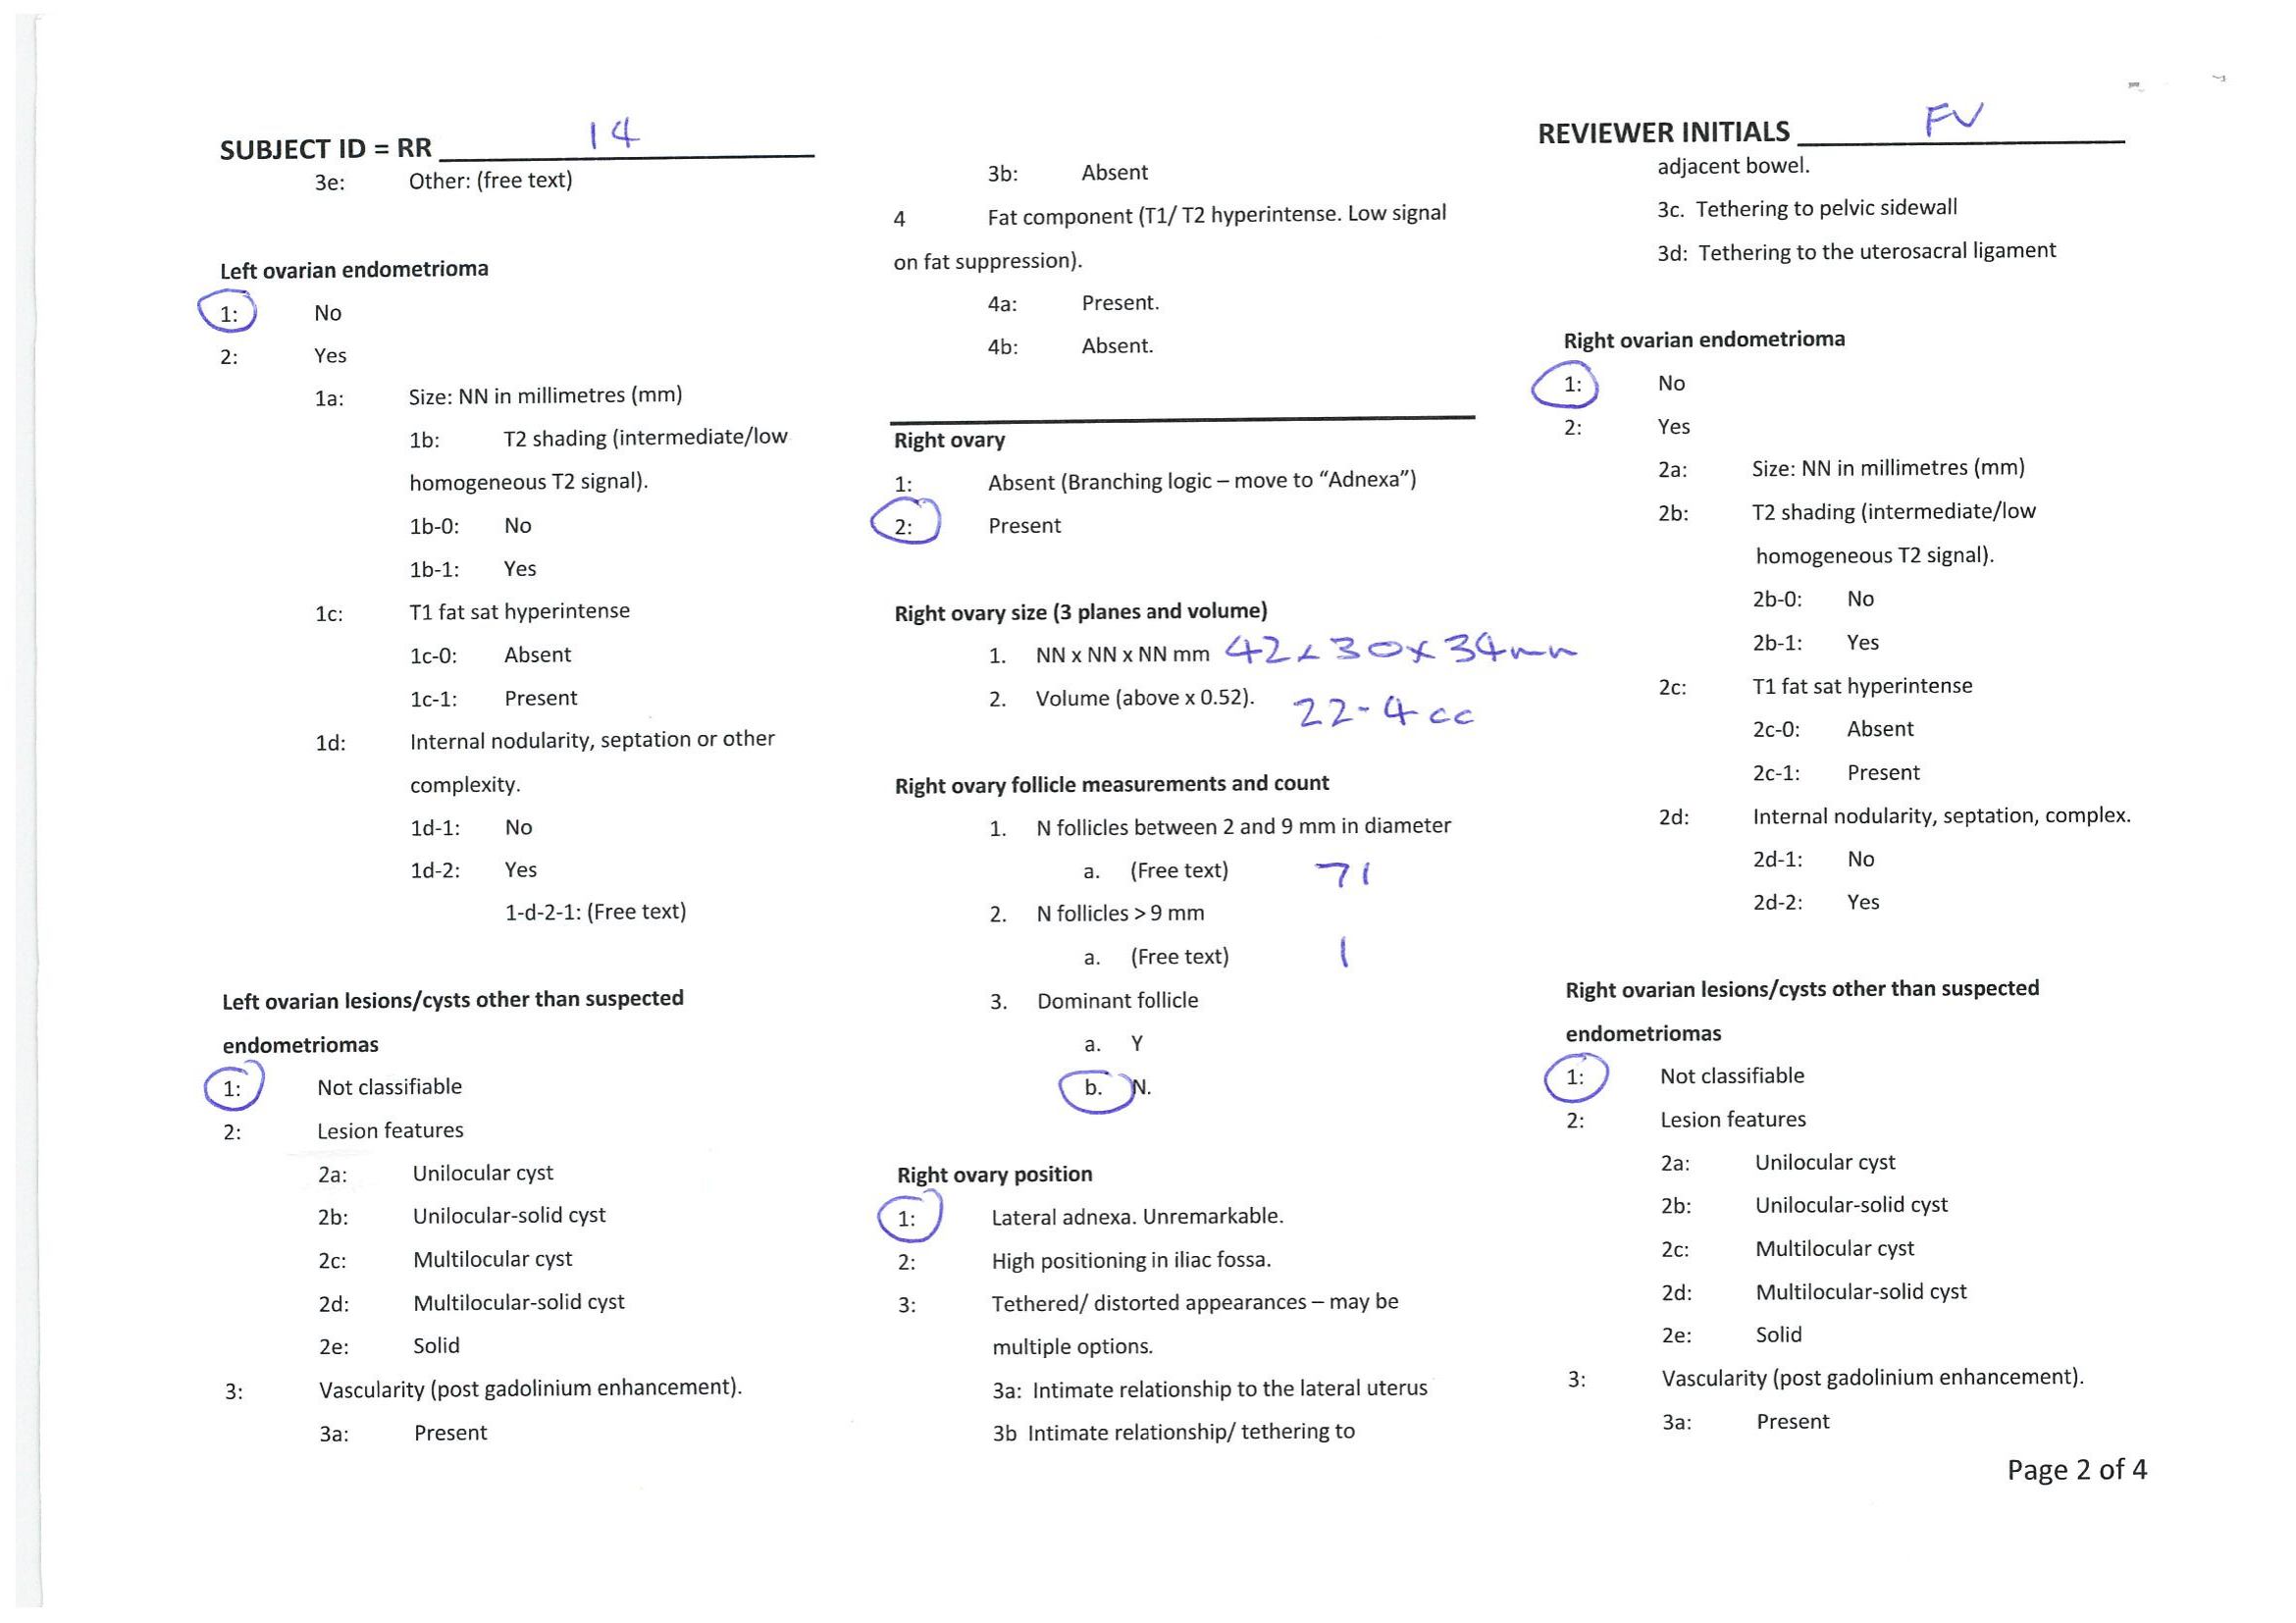 SUBJECT ID = RR 14
3e: Other: (free text)
Left ovarian endometrioma
1: No
2: Yes
1a: Size: NN in millimetres (mm)
1b: T2 shading (intermediate/low
homogeneous T2 signal).
1b-0: No
1b-1: Yes
1c: T1 fat sat hyperintense
1c-0: Absent
1c-1: Present
1d: Internal nodularity, septation or other
complexity.
1d-1: No
1d-2: Yes
1-d-2-1: (Free text)
Left ovarian lesions/cysts other than suspected
endometriomas
1: Not classifiable
2: Lesion features
2a: Unilocular cyst
2b: Unilocular-solid cyst
2c: Multilocular cyst
2d: Multilocular-solid cyst
2e: Solid
3: Vascularity (post gadolinium enhancement).
3a: Present
3b: Absent
4 Fat component (T1/ T2 hyperintense. Low signal
on fat suppression).
4a: Present.
4b: Absent.
Right ovary
1: Absent (Branching logic – move to “Adnexa”)
2: Present
Right ovary size (3 planes and volume)
1. NN x NN x NN mm 42x30x34mm
2. Volume (above x 0.52). 22-4 cc
Right ovary follicle measurements and count
1. N follicles between 2 and 9 mm in diameter
a. (Free text) 71
2. N follicles > 9 mm
a. (Free text) 1
3. Dominant follicle
a. Y
b. N.
Right ovary position
1: Lateral adnexa. Unremarkable.
2: High positioning in iliac fossa.
3: Tethered/ distorted appearances – may be
multiple options.
3a: Intimate relationship to the lateral uterus
3b Intimate relationship/ tethering to
REVIEWER INITIALS FV
adjacent bowel.
3c. Tethering to pelvic sidewall
3d: Tethering to the uterosacral ligament
Right ovarian endometrioma
1: No
2: Yes
2a: Size: NN in millimetres (mm)
2b: T2 shading (intermediate/low
homogeneous T2 signal).
2b-0: No
2b-1: Yes
2c: T1 fat sat hyperintense
2c-0: Absent
2c-1: Present
2d: Internal nodularity, septation, complex.
2d-1: No
2d-2: Yes
Right ovarian lesions/cysts other than suspected
endometriomas
1: Not classifiable
2: Lesion features
2a: Unilocular cyst
2b: Unilocular-solid cyst
2c: Multilocular cyst
2d: Multilocular-solid cyst
2e: Solid
3: Vascularity (post gadolinium enhancement).
3a: Present
Page 2 of 4